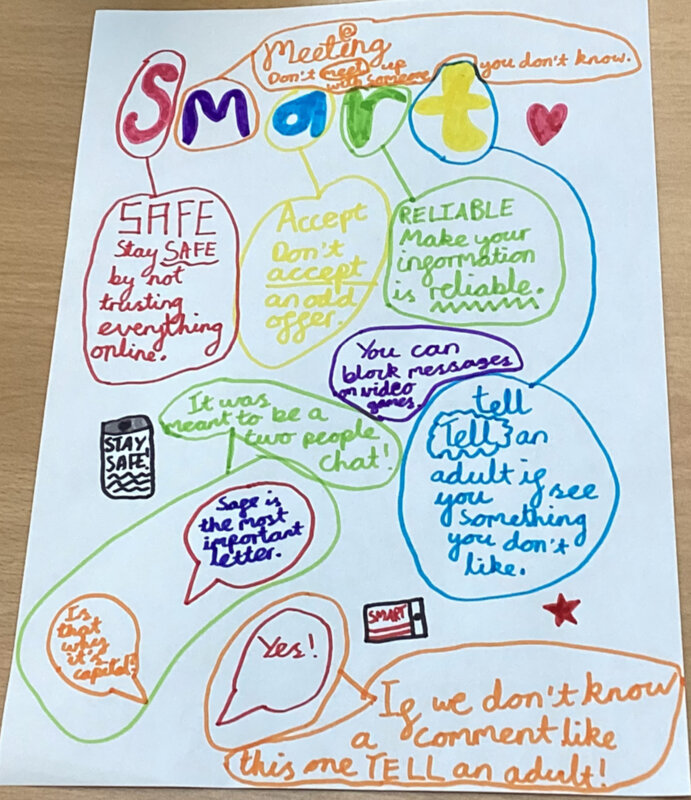 @
Meeting
Don't meet up
with someone
you don't know.
Smart
SAFE
Stay SAFE
by not
trusting
everything
online.
Accept
Don't
accept
an odd
offer.
RELIABLE
Make your
information
is reliable.
You can
block messages
on video
games.
It was
meant to be a
two people
chat!
STAY
SAFE!
tell
Tell an
adult if
you see
something
you don't
like.
Safe is
the most
important
letter.
Is
that
why
it's
capital?
Yes!
SMART
If we don't know
a comment like
this one TELL an adult!